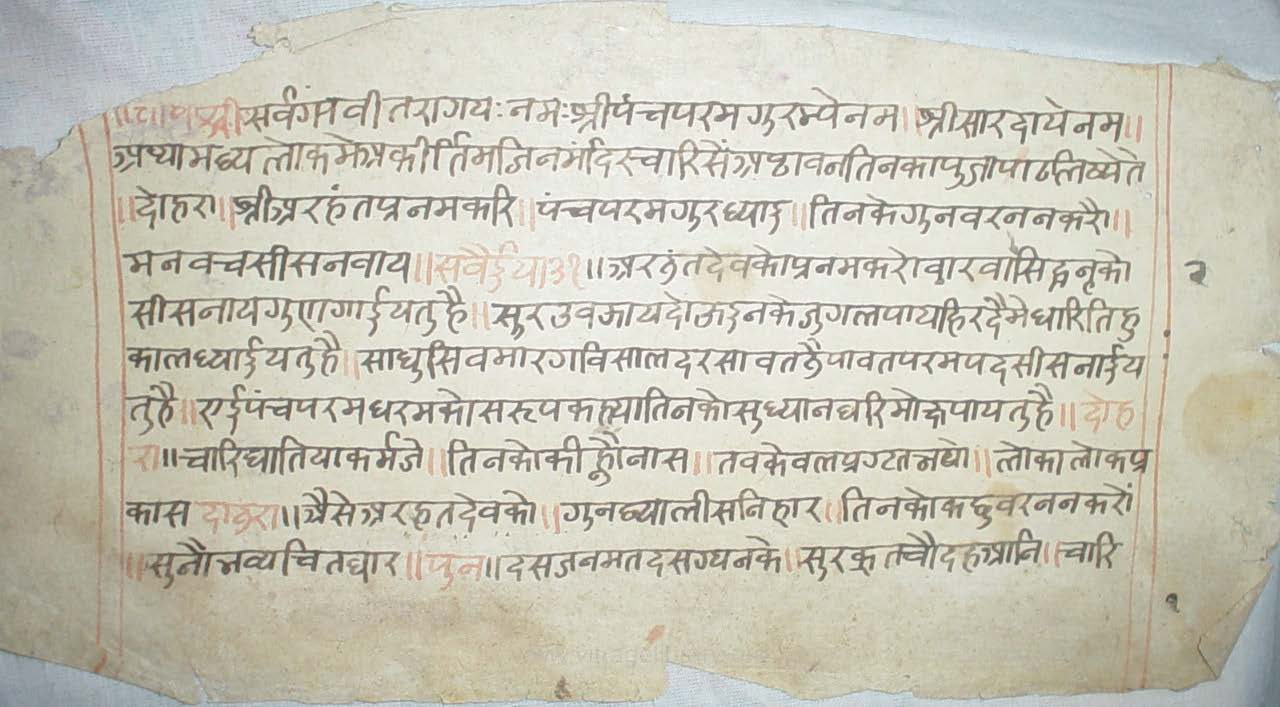 ॥ श्री सर्वगपवीतरागयः नमः श्रीपंचपरमगुरम्पेनम ॥ श्रीसारदायेनम ॥
अथ्यामध्यलोकमेअकीर्तिमजिनमंदिरचारिसैंअठावनतिनकापुजापाठलिष्येते
॥ दोहरा ॥ श्रीअरहंतप्रनमकरि ॥ पंचपरमगुरध्याइ ॥ तिनकेगुनवरननकरै ॥
मनवचसीसनवाय ॥ सवैईया ३१ ॥ अरहंतदेवकोप्रनमकरोवारवासिद्धनृको
२
सीसनायगुणगाईयतुहै ॥ सुरउवझायदोऊइनकेजुगलपायहिरदैमेधारितिहु
कालध्याईयतुहै ॥ साधुसिवमारगविसालदरसावतहैपावतपरमपदसीसनाईय
तुहै ॥ एईपंचपरमधरमकोसरूपकह्यातिनकोसुध्यानधरिमोक्षपायतुहै ॥ दोह
रा ॥ चारिघातियाकर्मजे ॥ तिनकोकीह्नौनास ॥ तवकेवलप्रगटतभयो ॥ लोकालोकप्र
कास दोहरा ॥ अैसेअरहतदेवको ॥ गुनछ्यालीसनिहार ॥ तिनकोकछुवरननकरों
॥ सुनौभव्यचितधार ॥ पुन ॥ दसजनमतदसग्यनके ॥ सुरकृतचौदहआनि ॥ चारि
१